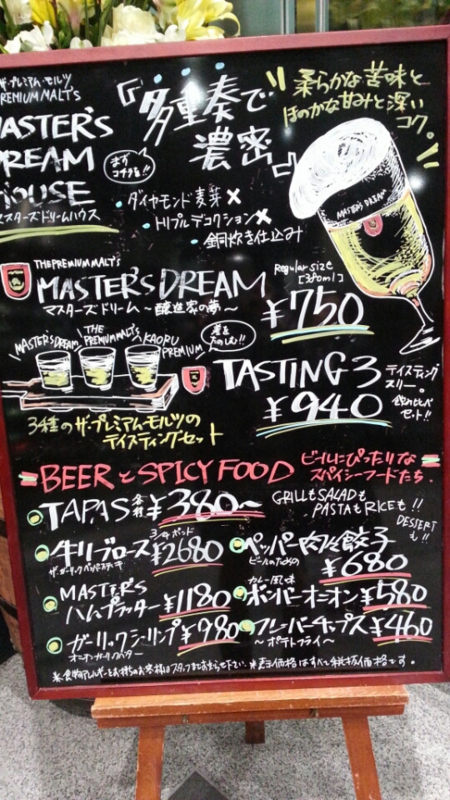 ザ・プレミアム・モルツ
PREMIUM MALT'S
MASTER'S
DREAM
HOUSE
マスターズドリームハウス
まず
コチラ!!
『多重奏で
濃密』
柔らかな苦味と
ほのかな甘みと深い
コク。
・ダイヤモンド麦芽×
・トリプルデコクション×
・銅炊き仕込み
MASTER'S DREAM
THE PREMIUM MALT'S
MASTER'S DREAM
マスターズドリーム ～醸造家の夢～
Regular size
[380ml]
¥750
MASTER'S DREAM
THE PREMIUM MALT'S
KAORU PREMIUM
TASTING 3
テイスティング
スリー。
¥940
飲みくらべ
セット!!
3種のザ・プレミアムモルツの
テイスティングセット
BEER と SPICY FOOD
ビールにぴったりな
スパイシーフードたち
TAPAS 各種 ¥380～
GRILLもSALADも
PASTAもRICEも!!
DESSERT
も!!
牛リブロース 3/4ポンド ¥2680
ペッパー肉冷餃子
ビールのための
¥680
MASTER'S
ハムプラッター ¥1180
カレー風味
ボンバーオニオン ¥580
ガーリックシュリンプ ¥980
フレーバーチップス ¥460
～ポテトフライ～
※食物アレルギーをお持ちのお客様はスタッフまでお申し付け下さい。※表示価格はすべて税抜価格です。